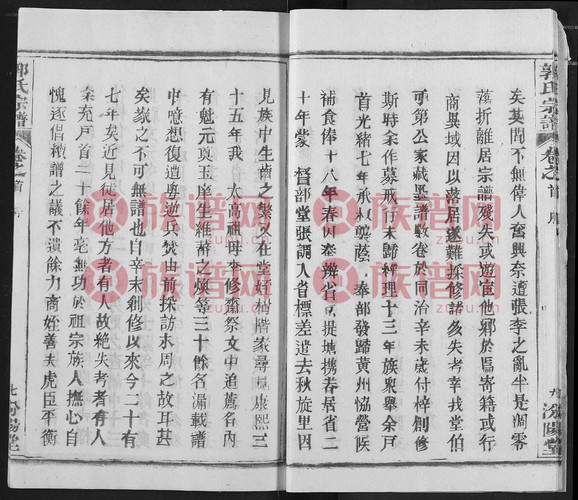 郭氏宗譜
卷之首
汾陽堂
矣其間不無偉人奮興奈遭張李之亂半是凋零
蕩折離居宗譜殘失或遊宦他鄉於焉寄籍或行
商異域因以落居遂難採修諸多失考幸我堂伯
可第公家藏墨譜數卷於同治辛未歲付梓創修
斯時余作募戎行未歸梓理十三年族眾舉余戶
首光緒七年承襲䕃 奉部發歸黃州協營候
補食俸十八年春因奉辦省司提塘携眷居省二
十年蒙 督部堂張調入省標差遣去秋旋里因
見族中生齒之繁久在堂好樹楷家尋康熙三
十五年我 太高祖母李修齋祭文中追薦名內
有魁元與玉廖生維醉之煥等三十餘名漏載譜
中噫想復遭譽逆氏焚由前探訪未周之故耳甚
矣家之不可無譜也自辛未創修以來今二十有
七年矣近見徙居他方者有人故絶失考者有人
余充戶首二十餘年毫無功於祖宗族人撫心自
愧逐倡續譜之議不遺餘力商姪善夫虎臣平衡
郭氏宗譜
卷之首
七
汾陽堂
族譜网
zozupu.com